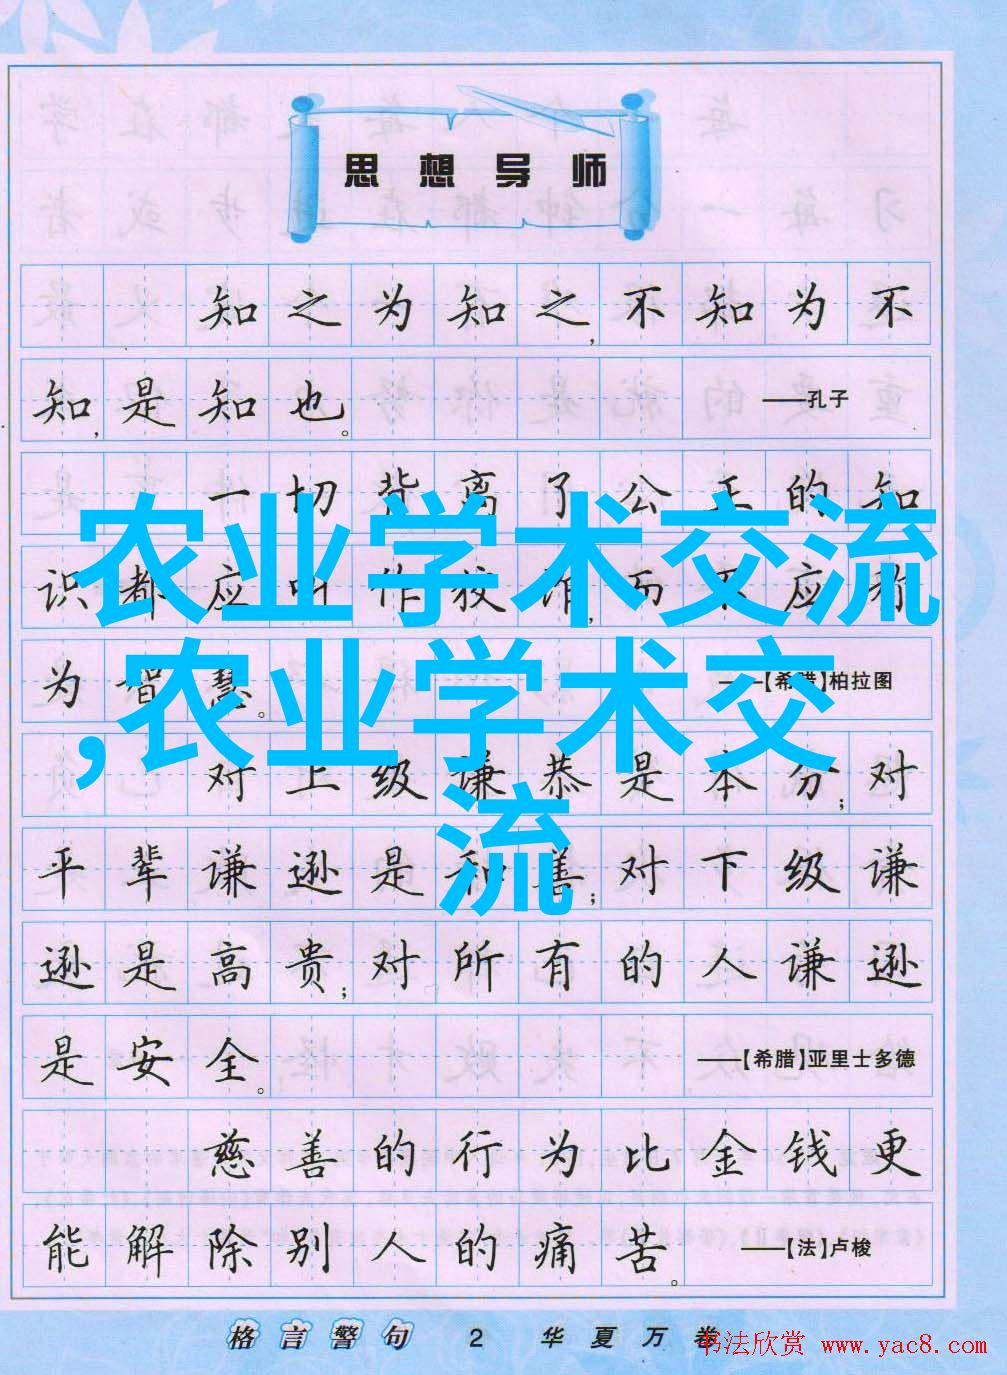 思想导师
知之为知之,不知为不
知,是知也。 ——孔子
一切背离了公正的知
识都应叫作狡诈,而不应称
为智慧。 ——【希腊】柏拉图
农业学术交流
,农业学术交
流
对上级谦恭是本分;对
平辈谦逊是和善;对下级谦
逊是高贵;对所有的人谦逊
是安全。 ——【希腊】亚里士多德
慈善的行为比金钱更
能解除别人的痛苦。 ——【法】卢梭
格言警句 2 华夏万卷
书法欣赏 www.yac8.com